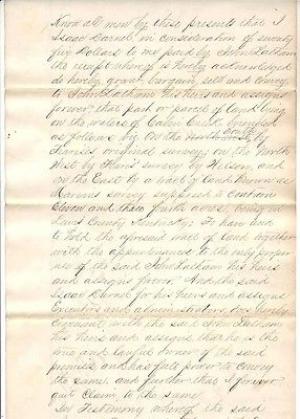 Know all men by these presents that I
Isaac in consideration of seventy
five Dollars to me paid by John Latham
the receipt whereof is hereby acknowledged
do hereby grant, bargain, sell and convey
to John Latham his heirs and assigns
forever, that part or parcel of land lying
on the waters of Cabin Creek
as follows viz On the South by
original survey; on the North
West by survey by and
on the East by a tract of land known as
survey supposed to contain
Eleven and three fourth acres, lying in
Lewis County Kentucky; To have and
to hold the aforesaid tract of land together
with the appurtenances to the only proper
use of the said John Latham his heirs
and assigns forever. And the said
Isaac for his heirs and assigns
Executors and administrators, does hereby
Covenant with the said John Latham
his heirs and assigns that he is the
true and lawful owner of the said
premises and has full power to convey
the same. and further that I forever
quit Claim to the same
In Testimony whereof the said